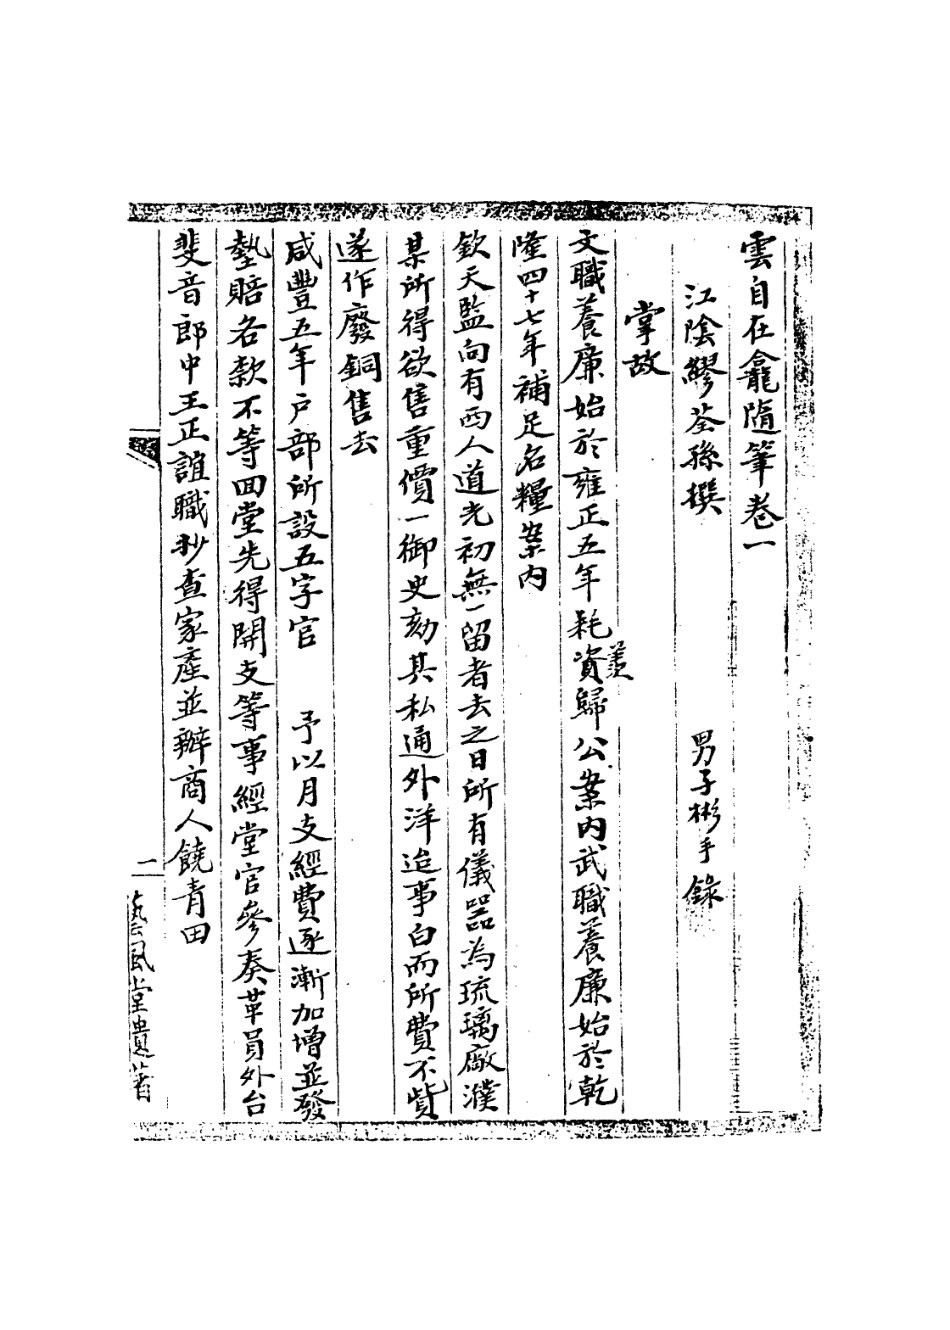 雲自在龕隨筆卷一
江陰繆荃孫撰 男子彬手錄
掌故
文職養廉始於雍正五年耗資羨歸公案內武職養廉始於乾
隆四十七年補足名糧案內
欽天監向有西人道光初無一留者去之日所有儀器為琉璃廠濮
某所得欲售重價一御史劾其私通外洋迨事白而所費不貲
遂作廢銅售去
咸豐五年戶部所設五字官 予以月支經費逐漸加增並發
墊賠各款不等回堂先得開支等事經堂官參奏革員外台
斐音郎中王正誼職抄查家產並辦商人饒青田
二
藝風堂遺著